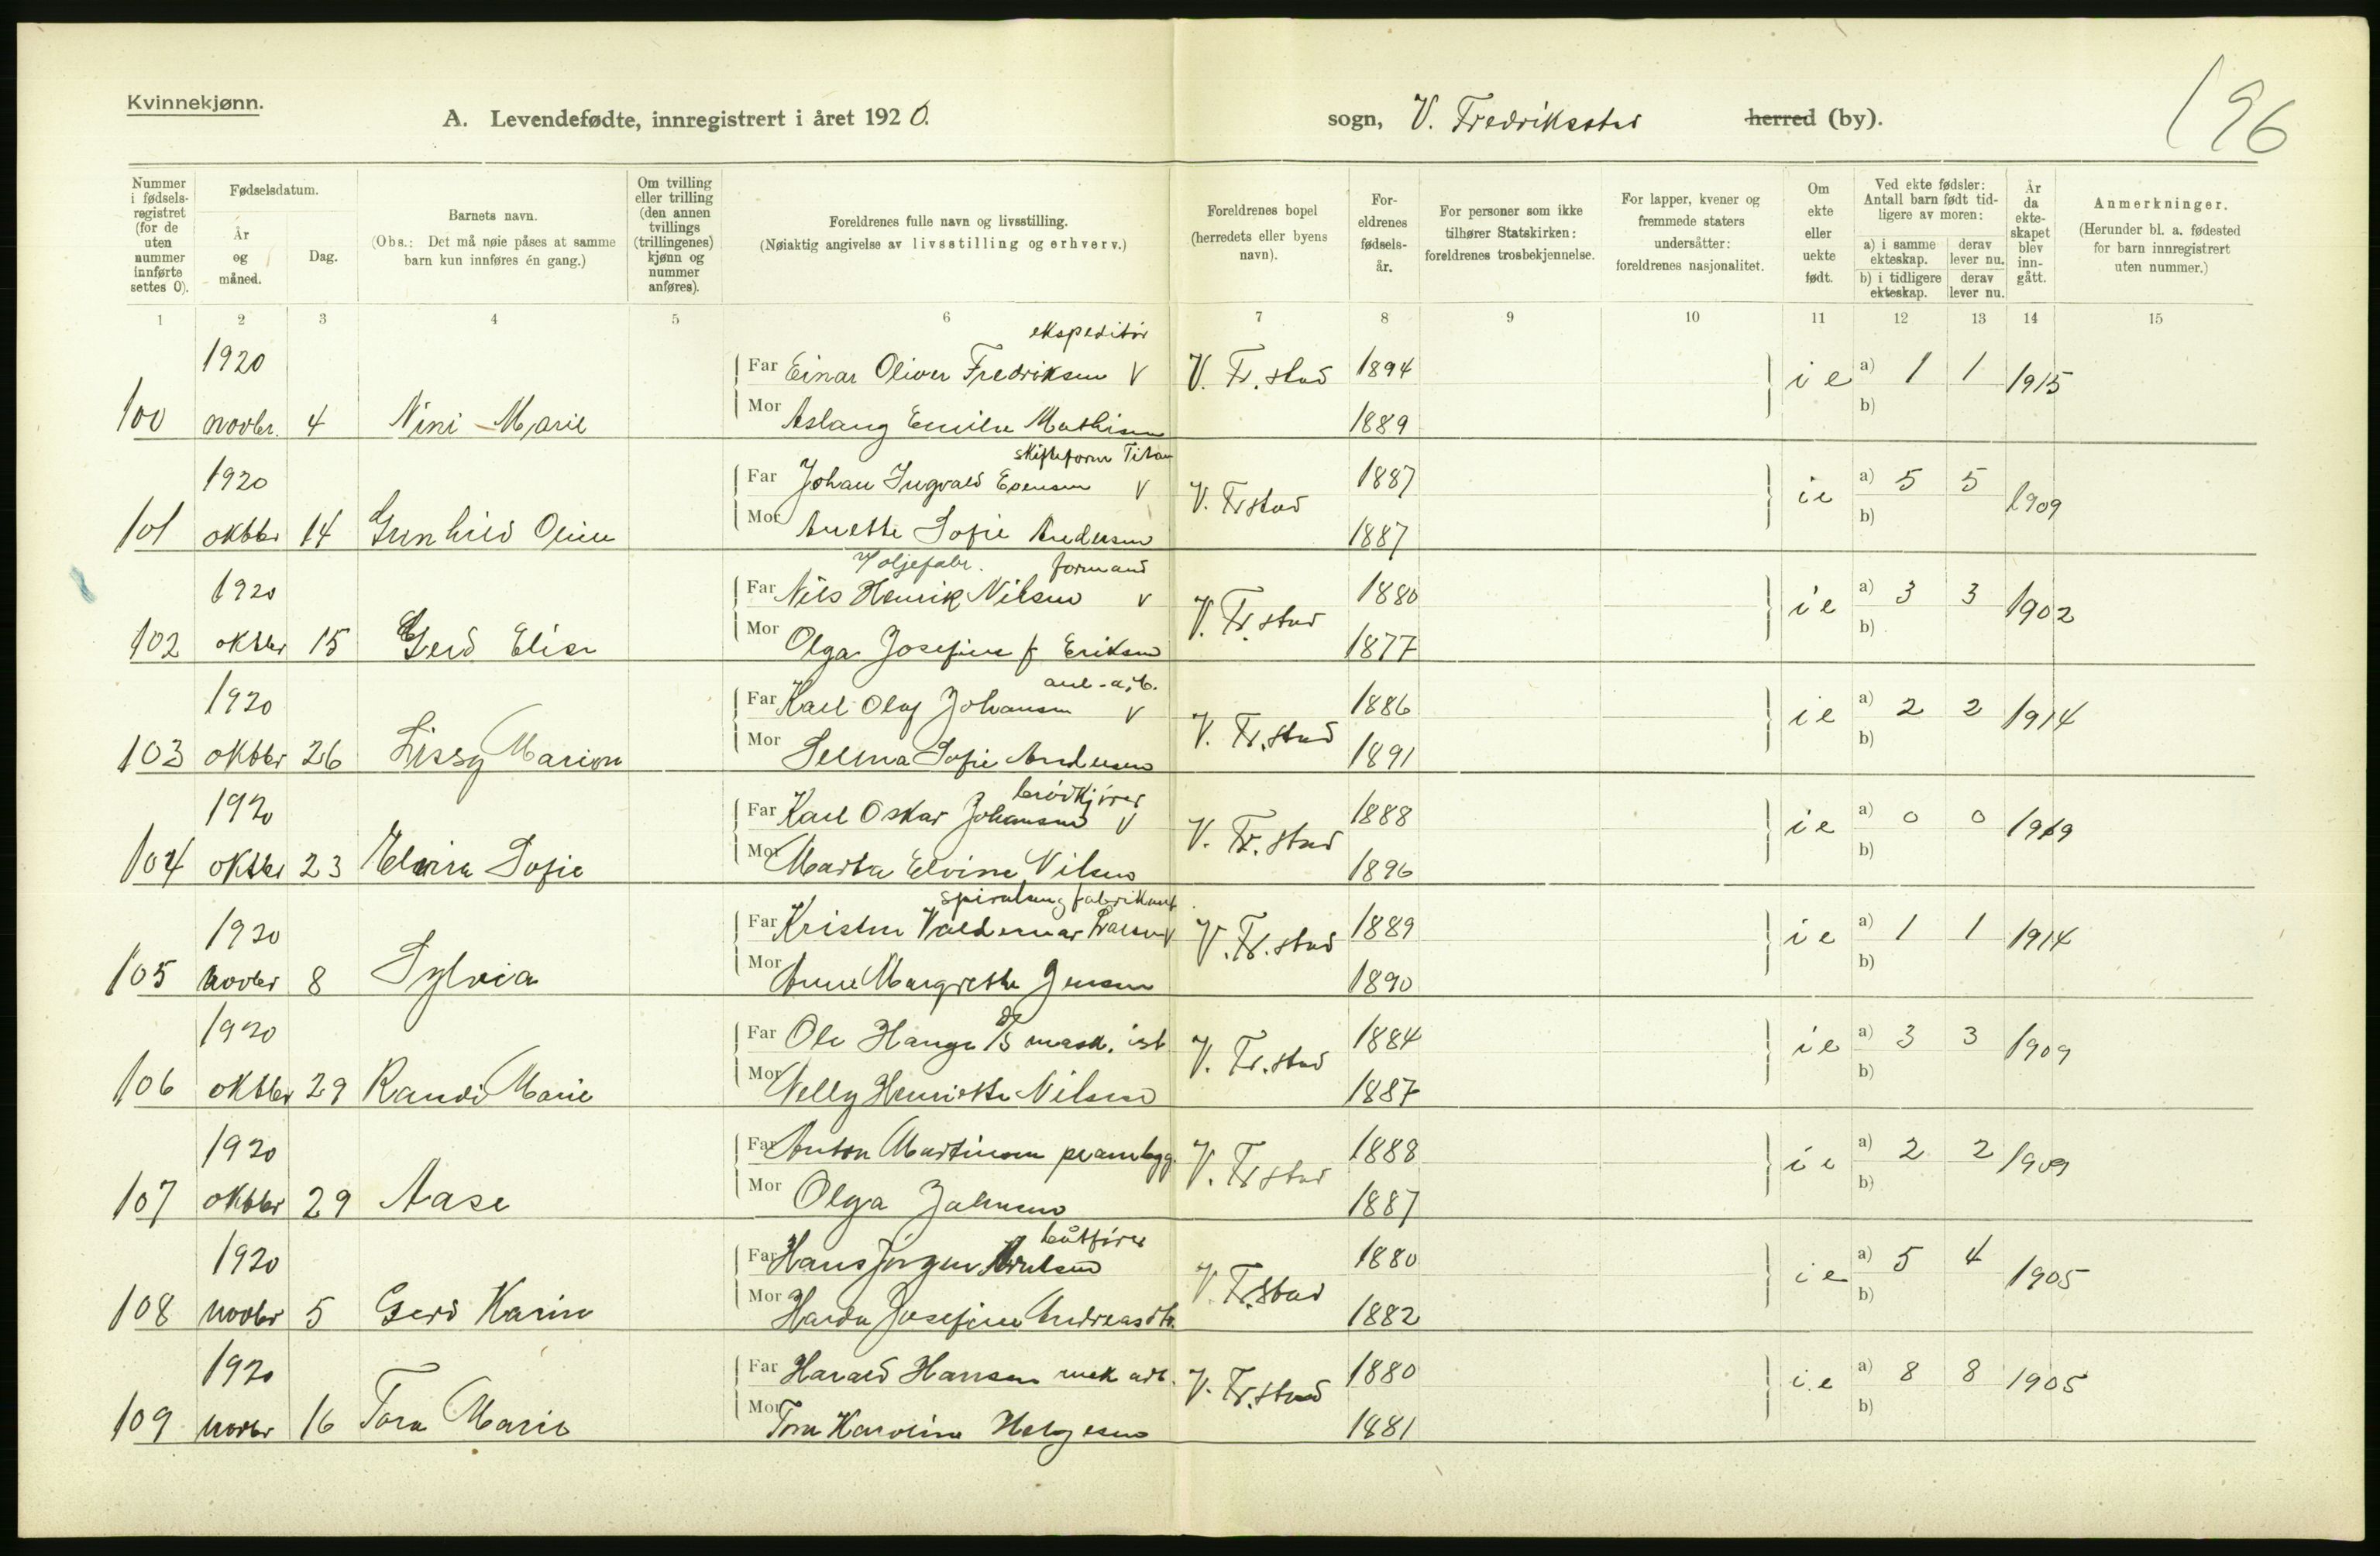 Kvinnekjønn.
A. Levendefødte, innregistrert i året 1920.
sogn, V. Fredriksstad herred (by).
196
Nummer i fødselsregistret (for de uten nummer innførte settes 0).
Fødselsdatum.
År og måned.
Dag.
Barnets navn.
(Obs.: Det må nøie påses at samme barn kun innføres én gang.)
Om tvilling eller trilling (den annen tvillings (trillingenes) kjønn og nummer anføres).
Foreldrenes fulle navn og livsstilling.
(Nøiaktig angivelse av livsstilling og erhverv.)
Foreldrenes bopel (herredets eller byens navn).
Foreldrenes fødselsår.
For personer som ikke tilhører Statskirken: foreldrenes trosbekjennelse.
For lapper, kvener og fremmede staters undersåtter: foreldrenes nasjonalitet.
Om ekte eller uekte født.
Ved ekte fødsler: Antall barn født tidligere av moren:
a) i samme ekteskap. derav lever nu.
b) i tidligere ekteskap. derav lever nu.
År da ekteskapet blev inngått.
Anmerkninger.
(Herunder bl. a. fødested for barn innregistrert uten nummer.)
1 2 3 4 5 6 7 8 9 10 11 12 13 14 15
ekspeditør
1920 Far Einar Oliver Fredriksen V V. Fr.stad 1894 ie a) 1 1 1915
100 novbr. 4 Nini Marie Mor Aslaug Emilie Mathisen 1889 b)
skifteform Titan
1920 Far Johan Ingvald Evensen V V. Frstad 1887 ie a) 5 5 1909
101 oktbr 14 Gunhild Oline Mor Anette Sofie Andersen 1887 b)
oljefabr. formand
1920 Far Nils Henrik Nilsen V V. Fr.stad 1880 ie a) 3 3 1902
102 oktbr 15 Gerd Elise Mor Olga Josefine f Eriksen 1877 b)
1920 Far Karl Olaf Johansen V V. Fr.stad 1886 ie a) 2 2 1914
103 oktbr 26 Lissy Marion Mor Selma Sofie Andersen 1891 b)
brødkjører
1920 Far Karl Oskar Johansen V V. Fr.stad 1888 ie a) 0 0 1919
104 oktbr 23 Elvira Sofie Mor Marta Elvine Nilsen 1896 b)
spiralseng fabrikant
1920 Far Kristen Valdemar V V. Fr.stad 1889 ie a) 1 1 1914
105 novbr 8 Sylvia Mor Anne Margrethe Jensen 1890 b)
1920 Far Ole Hauge D/S mask.ist V. Fr.stad 1884 ie a) 3 3 1909
106 oktbr 29 Randi Marie Mor Nelly Henriette Nilsen 1887 b)
1920 Far Anton Martinsen prambygg. V. Frstad 1888 ie a) 2 2 1909
107 oktbr 29 Aase Mor Olga Johnsen 1887 b)
båtfører
1920 Far Hans Jørgen V. Fr.stad 1880 ie a) 5 4 1905
108 novbr 5 Gerd Karin Mor Harda Josefine Andreasdtr. 1882 b)
1920 Far Harald Hansen mek arb. V. Fr.stad 1880 ie a) 8 8 1905
109 novbr 16 Tora Marie Mor Tora Karoline Helgesen 1881 b)